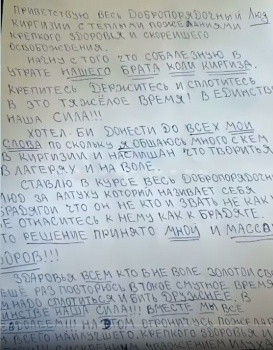 Приветствую весь добропорядочный люд
Киргизии с теплыми пожеланиями
крепкого здоровья и скорейшего
освобождения.
Начну с того что собалезную в
утрате нашего брата Коли Киргиза.
Крепитесь держитесь и сплотитесь
в это тяжёлое время! В единств
наша сила!!!
Хотел би донести до всех мои
слова по скольку я общаюсь много с кем
в Киргизии и наслишан что твориться
в лагерях и на воле.
Ставлю в курсе весь добропорядочн
люд за Алтуху которий називает себя
бродягой что он не кто и звать не как
не отнаситесь к нему как к брадяге.
то решение принято мной и массо
доров!!!
Здаровья всем кто в не воле. Золотой св
еще раз повторюсь в такое смутное время
надо сплотиться и бить дружнее. В
инстве наша сила!!! Вместе мы все
на этом ограничусь пожела
всего найлучшего, крепкого здоровья и